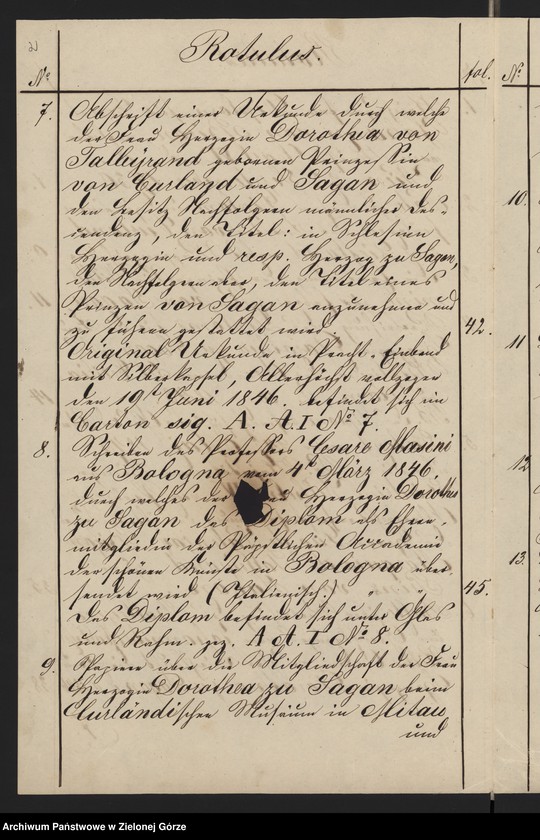 Rotulus.
No
fol.
No
7. Abschrift einer Urkunde durch welche
der Frau Herzogin Dorothea von
Talleyrand gebornen Prinzessin
von Curland und Sagan und
den Besitz Nachfolgern männlicher Des-
cendenz, den Titel: in Schlesien
Herzogin und resp. Herzog zu Sagan,
den Nachfolgern aber, den Titel eines
Prinzen von Sagan anzunehmen und
zu führen gestattet wird. 42.
Original Urkunde in Pracht-Einband
mit Silberkapsel, Allerhöchst vollzogen
den 19t Juni 1846. befindet sich im
Carton sig. A. A. I No 7.
8. Schreiben des Professors Cesare Masini
aus Bologna vom 4t März 1846,
durch welches der Herzogin Dorothea
zu Sagan das Diplom als Ehren-
mitgliedin der Päpstlichen Accademie
der schönen Künste in Bologna über-
sendet wird (Italienisch.) " " 45.
Das Diplom befindet sich unter Glas
und Rahm. gez. A A. I No 8.
9. Papiere über die Mitgliedschaft der Frau
Herzogin Dorothea zu Sagan beim
Curländischen Musäum in Mitau
und
10.
11
12
13.
Archiwum Państwowe w Zielonej Górze